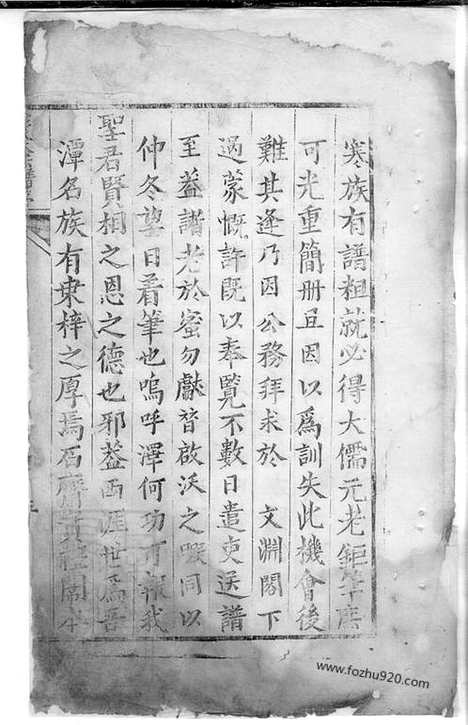 寒族有譜粗就必得大儒元老鉅筆
可光重簡册且因以為訓失此機會後
難其逢乃因公務拜求於 文淵閣下
過蒙慨許既以奉覽不數日遣吏送譜
至葢譜老於蜜勿獻替啟沃之暇同以
仲冬望日着筆也嗚呼澤何功可報我
聖君賢相之恩之德也邪葢西涯世爲吾
潭名族有桑梓之厚焉石
www.fozhu920.com